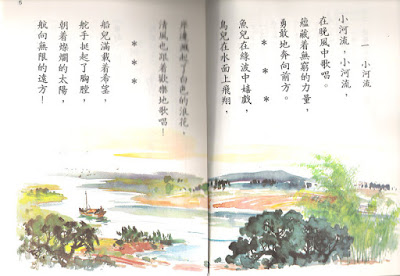 一 小河流
小河流，小河流，
在晚風中歌唱。
蘊藏着無窮的力量，
勇敢地奔向前方。
＊ ＊ ＊
魚兒在綠波中嬉戲，
鳥兒在水面上飛翔，
岸邊濺起了白色的浪花，
清風也跟着歡樂地歌唱！
＊ ＊ ＊
船兒滿載着希望，
舵手挺起了胸膛，
朝着燦爛的太陽，
航向無限的遠方！